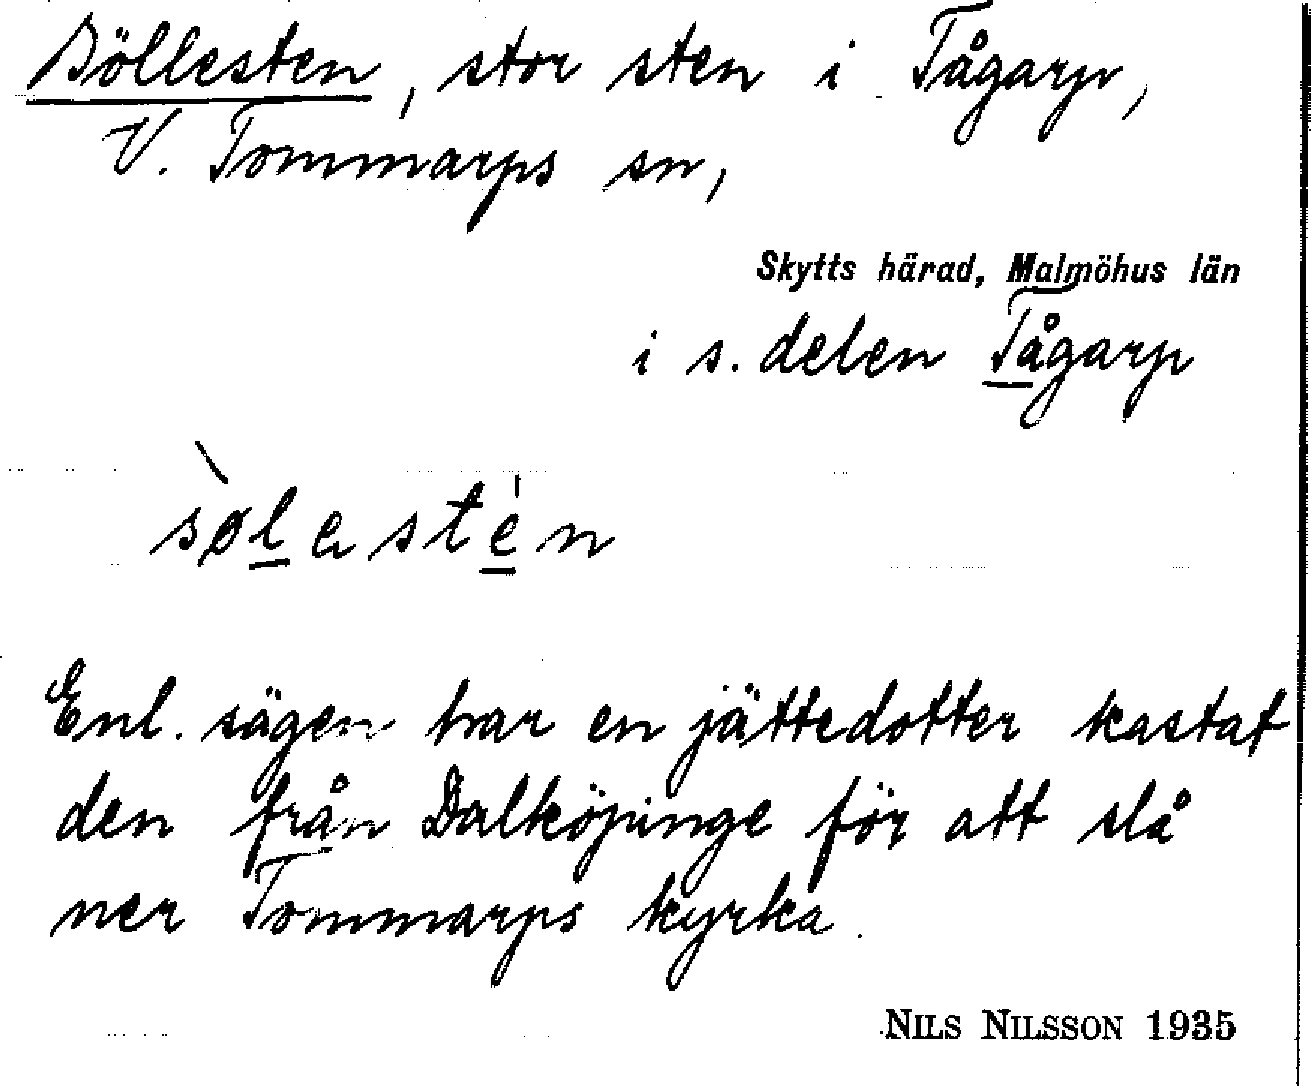 Böllesten, stor sten i Tågarp,
V. Tommarps sn,
Skytts härad, Malmöhus län
i s. delen Tågarp
Enl. sägen har en jättedotter kastat
den från Dalköpinge för att slå
ner Tommarps kyrka.
NILS NILSSON 1935